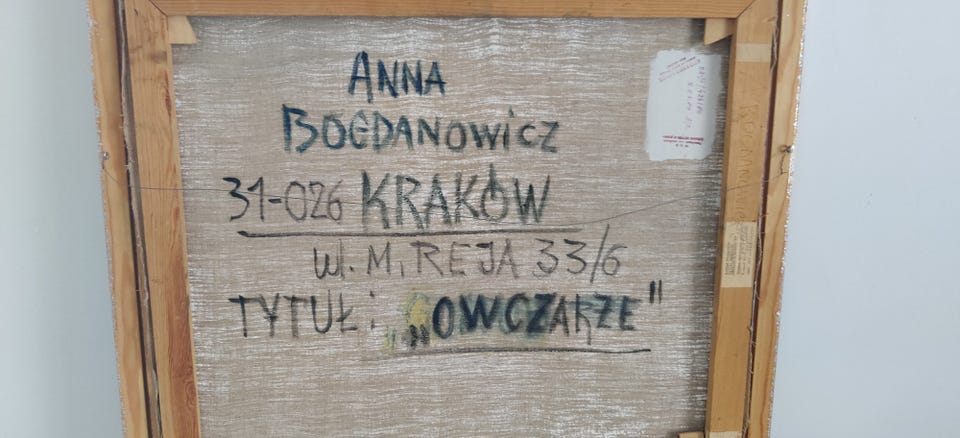 ANNA
BOGDANOWICZ
31-026 KRAKÓW
ul. M. REJA 33/6
TYTUŁ: „OWCZARZE"